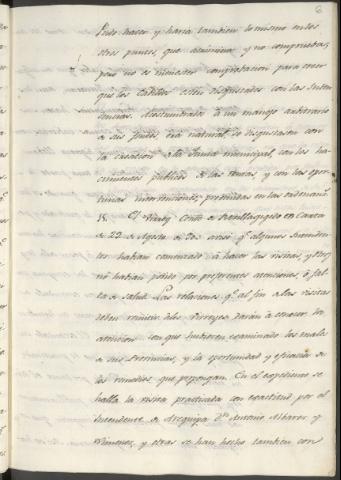 6
Pudo hacer y haria tambien lo mismo en los
otros puntos, que acrimina y no comprueba;
pero no es menester comprobacion para creer
que los Cabildos estén disgustados con las Inten-
dencias. Acostumbrados à un manejo arbitrario
de sus fondos era natural se disgustasen con
la creacion de la Junta municipal, con los ha-
cimientos publicos de las rentas, y con las opor-
tunas intervenciones prevenidas en las ordenanzas.
15. El Virrey Conde de Revillagigedo en Carta
de 22 de Agosto de 90 avisó qe. algunos Intenden-
tes habian comenzado à hacer las visitas, y otros
no habian podido por preferentes atenciones, ó fal-
ta de salud. Las relaciones qe. al fin de las visitas
deben remitir los Virreyes darán à conocer la
atencion con que hubieren examinado los males
de sus Provincias, y la oportunidad y eficacia de
los remedios que propongan. En el expediente se
halla la visita practicada con exactitud por el
Intendente de Arequipa Dn. Antonio Albarez y
Ximenez, y otras se han hecho tambien con